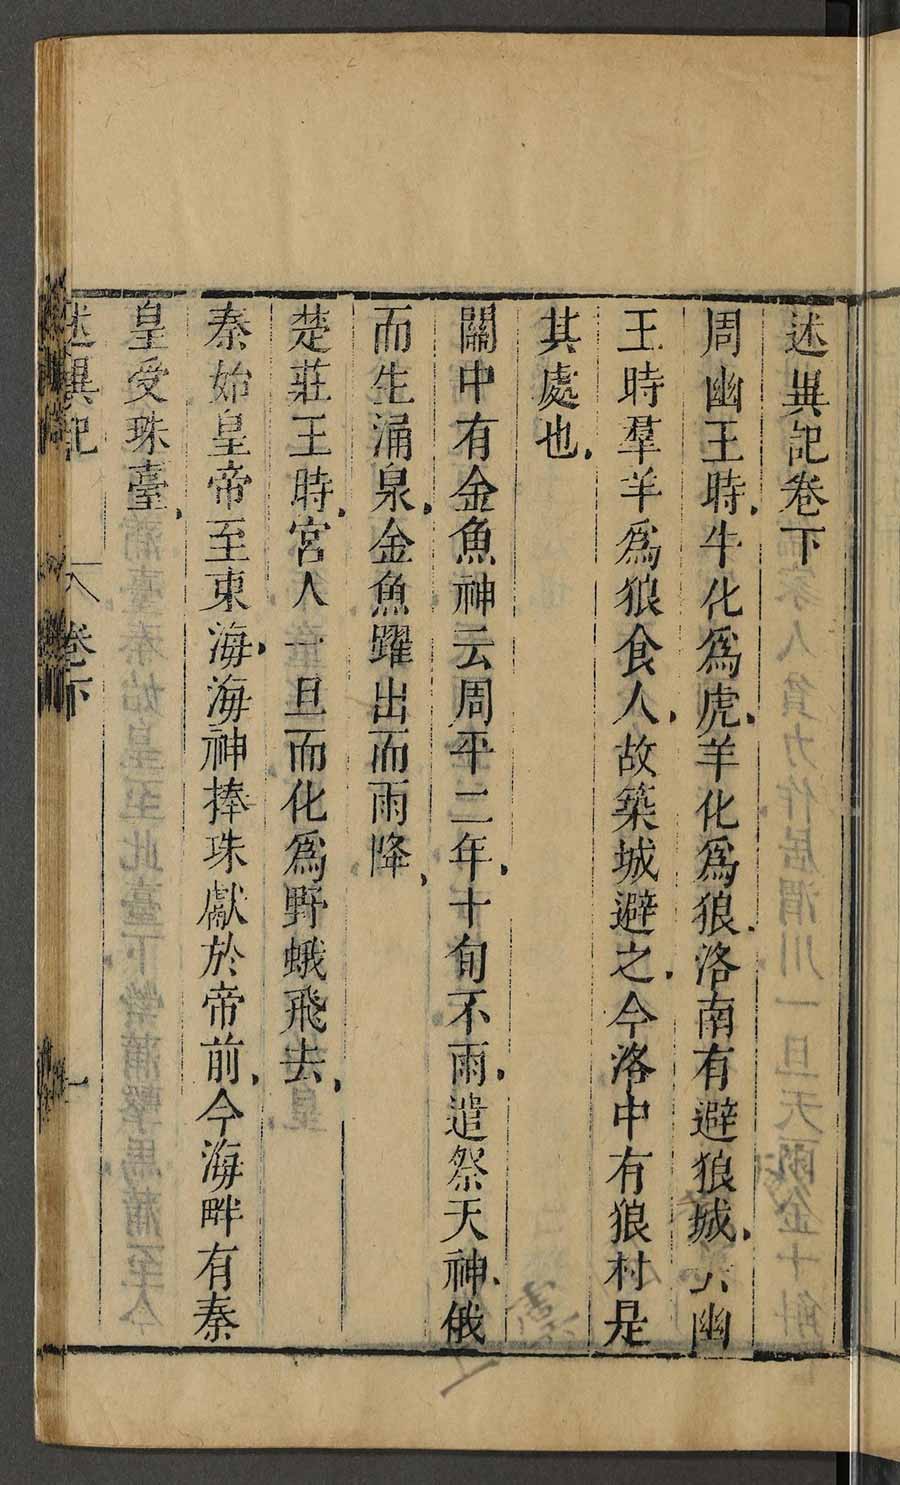 述異記卷下
周幽王時牛化為虎羊化為狼洛南有避狼城云幽
王時羣羊為狼食人故築城避之今洛中有狼村是
其處也
關中有金魚神云周平二年十旬不雨遣祭天神俄
而生涌泉金魚躍出而雨降
楚莊王時宮人一旦而化為野蛾飛去
秦始皇帝至東海海神捧珠獻於帝前今海畔有秦
皇受珠臺
述異記
卷下
一